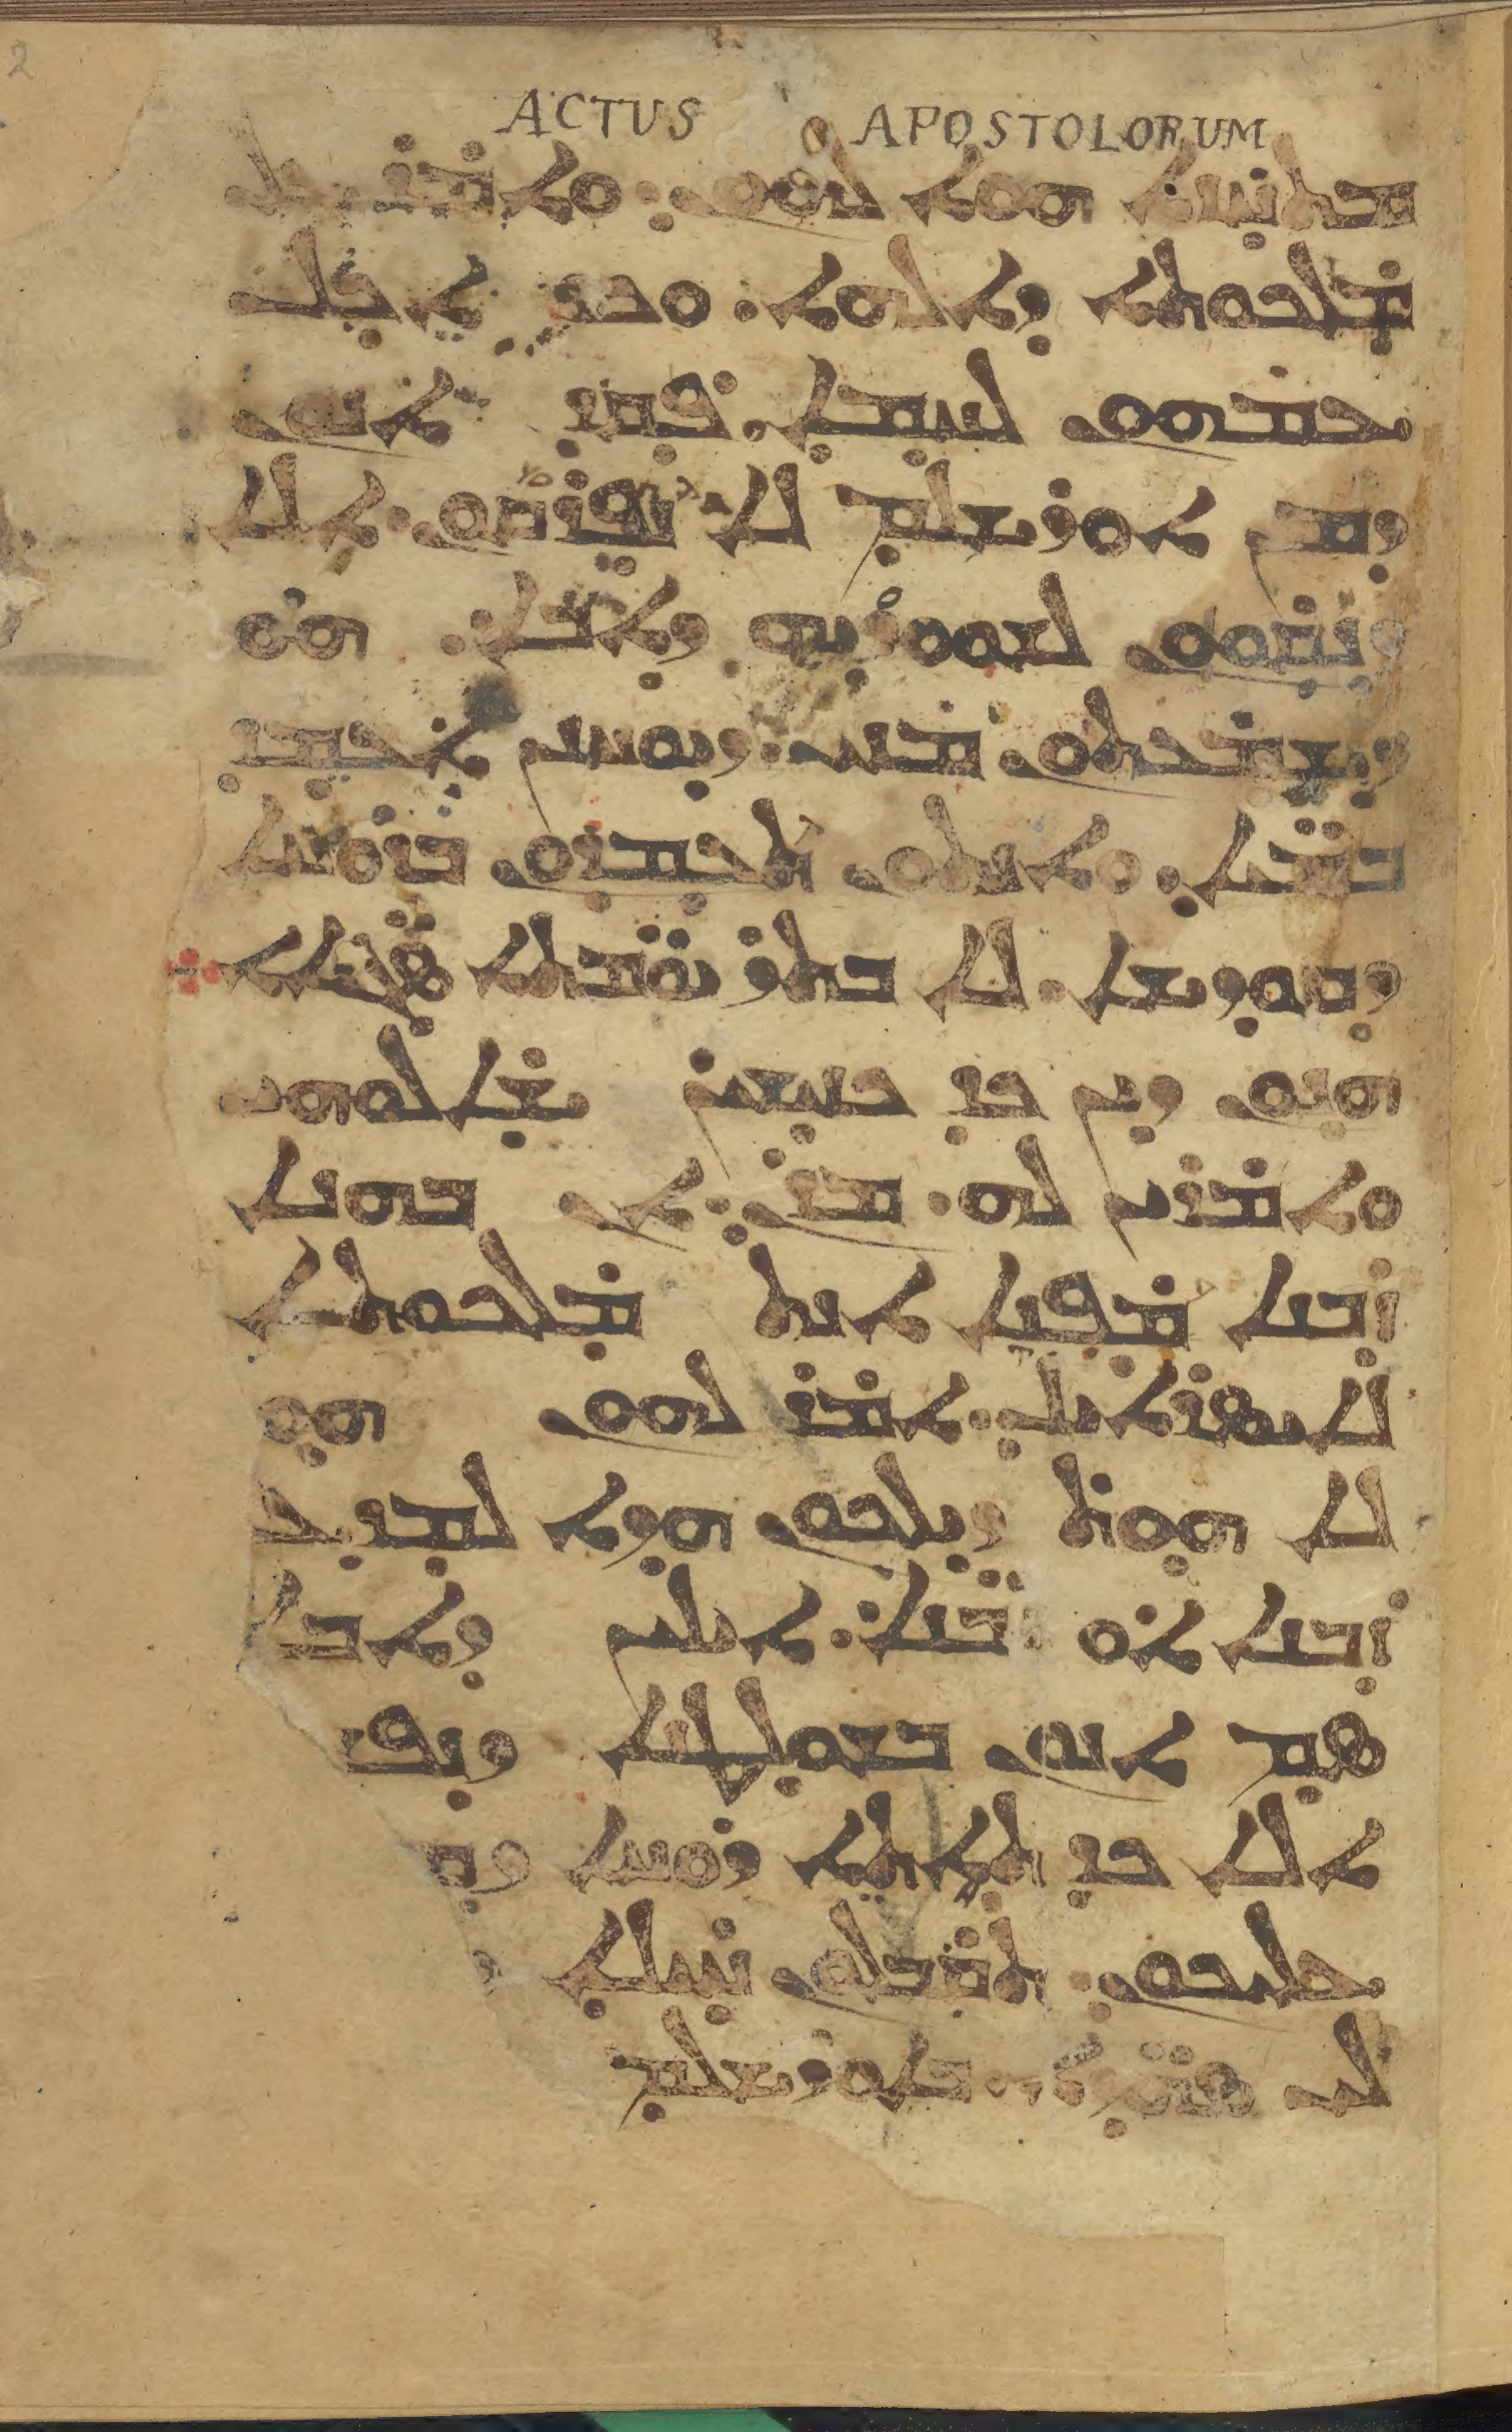 ACTUS APOSTOLORUM
ܡܬܚܙܐ ܗܘܐ ܠܗܘܢ܇ ܘܐܡܪ ܥܠ
ܡܠܟܘܬܐ ܕܐܠܗܐ܁ ܘܟܕ ܐܟܠ
ܥܡܗܘܢ ܠܚܡܐ܁ ܦܩܕ ܐܢܘܢ
ܕܡܢ ܐܘܪܫܠܡ ܠܐ ܢܦܪܩܘܢ܁ ܐܠܐ
ܕܢܩܘܘܢ ܠܫܘܘܕܝܗ ܕܐܒܐ܁ ܗܘ
ܕܫܡܥܬܘܢ ܡܢܝ܁ ܕܝܘܚܢܢ ܐܥܡܕ
ܒܡܝܐ܁ ܘܐܢܬܘܢ ܬܥܡܕܘܢ ܒܪܘܚܐ
ܕܩܘܕܫܐ܁ ܠܐ ܒܬܪ ܝܘܡܬܐ ܣܓܝܐܐ܀
ܗܢܘܢ ܕܝܢ ܟܕ ܟܢܝܫܝܢ ܫܐܠܘܗܝ
ܘܐܡܪܝܢ ܠܗ܁ ܡܪܢ܇ ܐܢ ܒܗܢܐ
ܙܒܢܐ ܡܦܢܐ ܐܢܬ ܡܠܟܘܬܐ
ܠܐܝܣܪܐܝܠ܁ ܐܡܪ ܠܗܘܢ ܗܘ
ܠܐ ܗܘܬ ܕܝܠܟܘܢ ܗܕܐ ܠܡܕܥ
ܙܒܢܐ ܐܘ ܙܒܢ̈ܐ܁ ܐܝܠܝܢ ܕܐܒܐ
ܣܡ ܐܢܘܢ ܒܫܘܠܛܢܐ ܕܢܦ
ܐܠܐ ܟܕ ܬܐܬܐ ܪܘܚܐ ܕܩ
ܥܠܝܟܘܢ܁ ܬܩܒܠܘܢ ܚܝܠܐ
ܠܝ ܣܗܕ̈ܐ܁ ܒܐܘܪܫܠܡ